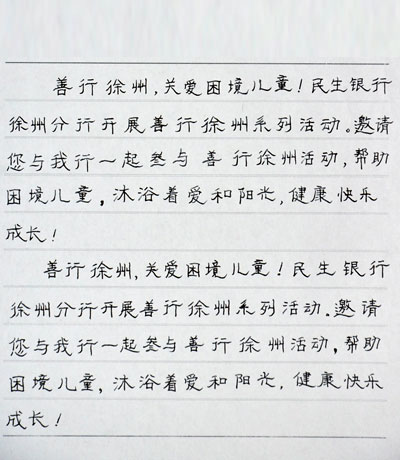 善行徐州,关爱困境儿童!民生银行
徐州分行开展善行徐州系列活动。邀请
您与我行一起参与善行徐州活动,帮助
困境儿童,沐浴着爱和阳光,健康快乐
成长!
善行徐州,关爱困境儿童!民生银行
徐州分行开展善行徐州系列活动。邀请
您与我行一起参与善行徐州活动,帮助
困境儿童,沐浴着爱和阳光,健康快乐
成长!